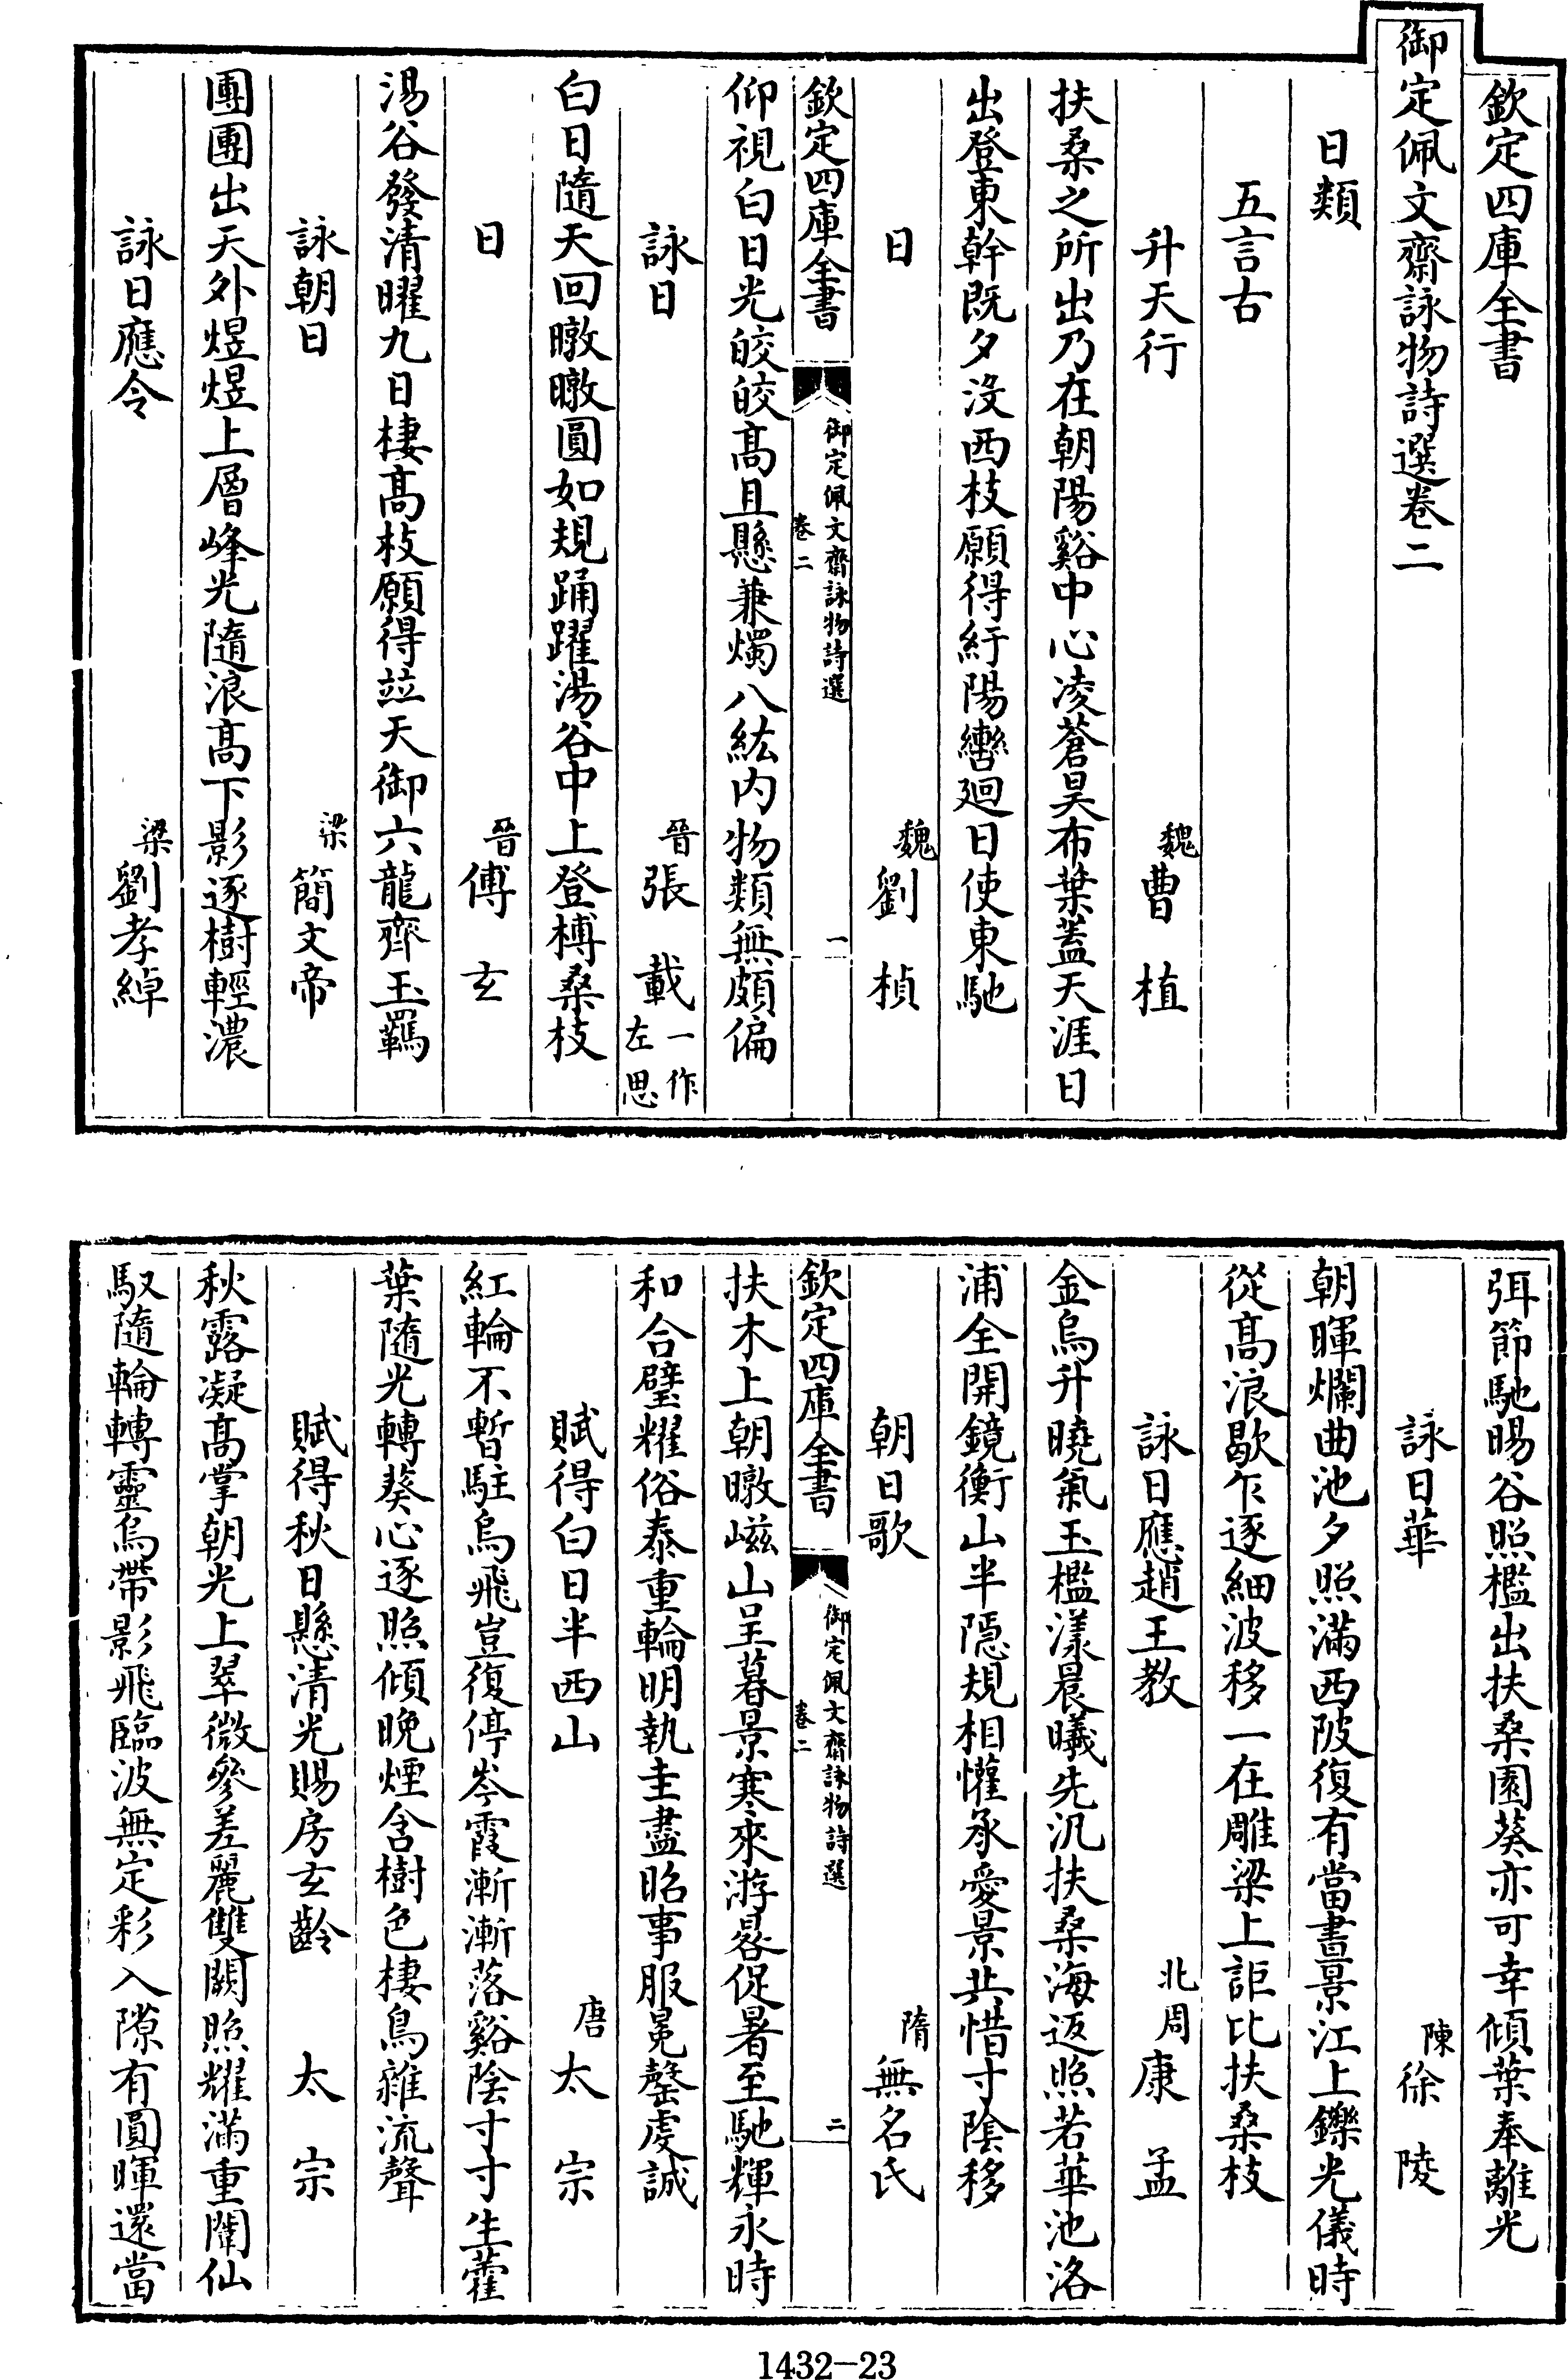 欽定四庫全書
御定佩文齋詠物詩選卷二
日類
五言古
升天行 魏曹植
扶桑之所出乃在朝陽谿中心凌蒼昊布葉蓋天涯日
出登東幹既夕沒西枝願得紆陽轡迴日使東馳
日 魏劉楨
欽定四庫全書 御定佩文齋詠物詩選 卷二 一
仰視白日光皎皎高且懸兼燭八紘内物類無頗偏
詠日 晉張載一作左思
白日隨天回暾暾圓如規踊躍湯谷中上登榑桑枝
日 晉傅玄
湯谷發清曜九日棲高枝願得竝天御六龍齊玉羈
詠朝日 梁簡文帝
團團出天外煜煜上層峰光隨浪高下影逐樹輕濃
詠日應令 梁劉孝綽
弭節馳暘谷照檻出扶桑園葵亦可幸傾葉奉離光
詠日華 陳徐陵
朝暉爛曲池夕照滿西陂復有當晝景江上鑠光儀時
從高浪歇乍逐細波移一在雕梁上詎比扶桑枝
詠日應趙王教 北周康孟
金烏升曉氣玉檻漾晨曦先汎扶桑海返照若華池洛
浦全開鏡衡山半隱規相懽承愛景共惜寸陰移
朝日歌 隋無名氏
欽定四庫全書 御定佩文齋詠物詩選 卷二 二
扶木上朝暾嵫山呈暮景寒來游晷促暑至馳輝永時
和合璧耀俗泰重輪明執圭盡昭事服冕罄虔誠
賦得白日半西山 唐太宗
紅輪不暫駐烏飛豈復停岑霞漸漸落谿陰寸寸生藿
葉隨光轉葵心逐照傾晚煙含樹色棲鳥雜流聲
賦得秋日懸清光賜房玄齡 太宗
秋露凝高掌朝光上翠微參差麗雙闕照耀滿重闈仙
馭隨輪轉靈烏帶影飛臨波無定彩入隙有圓暉還當
1432-23